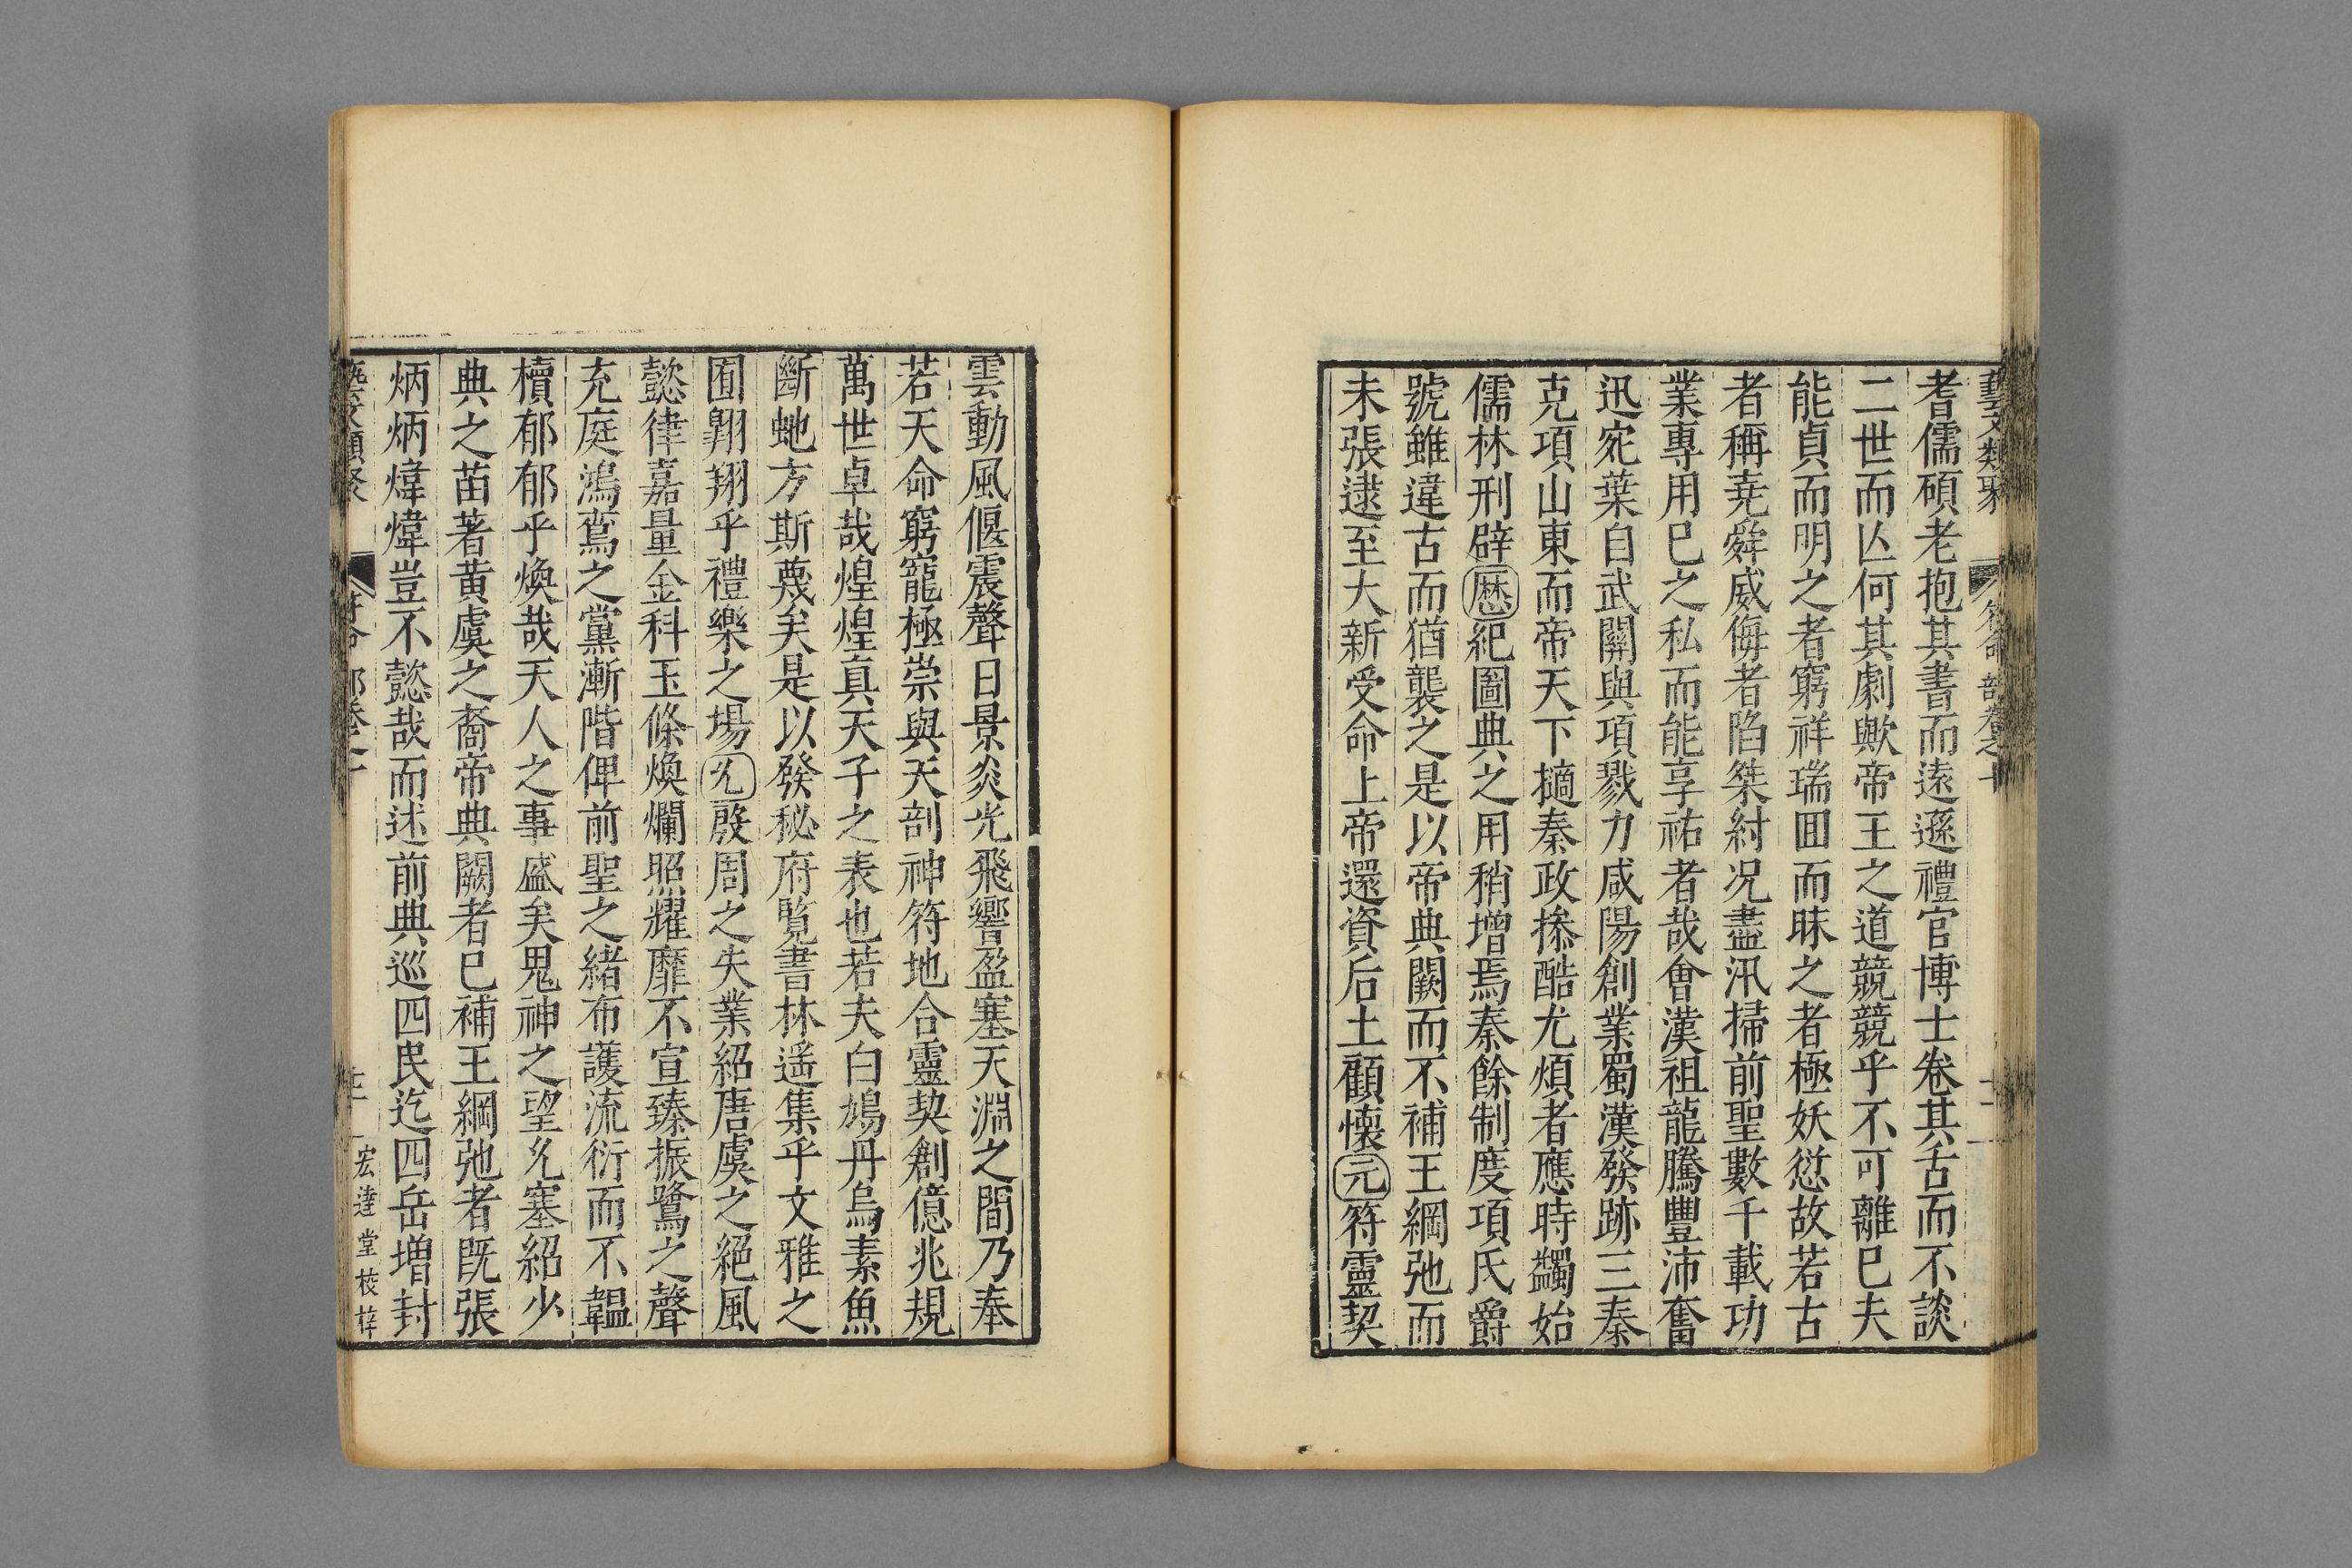 藝文類聚 符命部卷之十
耆儒碩老抱其書而遠遜禮官博士卷其舌而不談
二世而亾何其劇歟帝王之道競競乎不可離已夫
能貞而明之者窮祥瑞囬而昧之者極妖愆故若古
者稱堯舜威侮者陷桀紂况盡汛掃前聖數千載功
業專用已之私而能享祐者哉會漢祖龍騰豐沛奮
迅宛葉自武關與項戮力咸陽創業蜀漢發跡三秦
克項山東而帝天下擿秦政摻酷尤煩者應時蠲始
儒林刑辟歴紀圖典之用稍增焉秦餘制度項氏爵
號雖違古而猶襲之是以帝典闕而不補王綱弛而
未張逮至大新受命上帝還資后土顧懷元符靈契
雲動風偃震聲日景炎光飛響盈塞天淵之間乃奉
若天命窮寵極崇與天剖神符地合靈契創億兆規
萬世卓哉煌煌真天子之表也若夫白鳩丹烏素魚
斷虵方斯蔑矣是以發秘府覽書林遥集乎文雅之
囿翺翔乎禮樂之場乆殷周之失業紹唐虞之絕風
懿律嘉量金科玉條煥爛照耀靡不宣臻振鷺之聲
充庭鴻鸞之黨漸階俾前聖之緒布護流衍而不韞
櫝郁郁乎煥哉天人之事盛矣鬼神之望乆塞紹少
典之苗著黃虞之裔帝典闕者已補王綱弛者既張
炳炳煒煒豈不懿哉而述前典巡四民迄四岳增封
藝文類聚 符命部卷之十 宏逹堂校梓